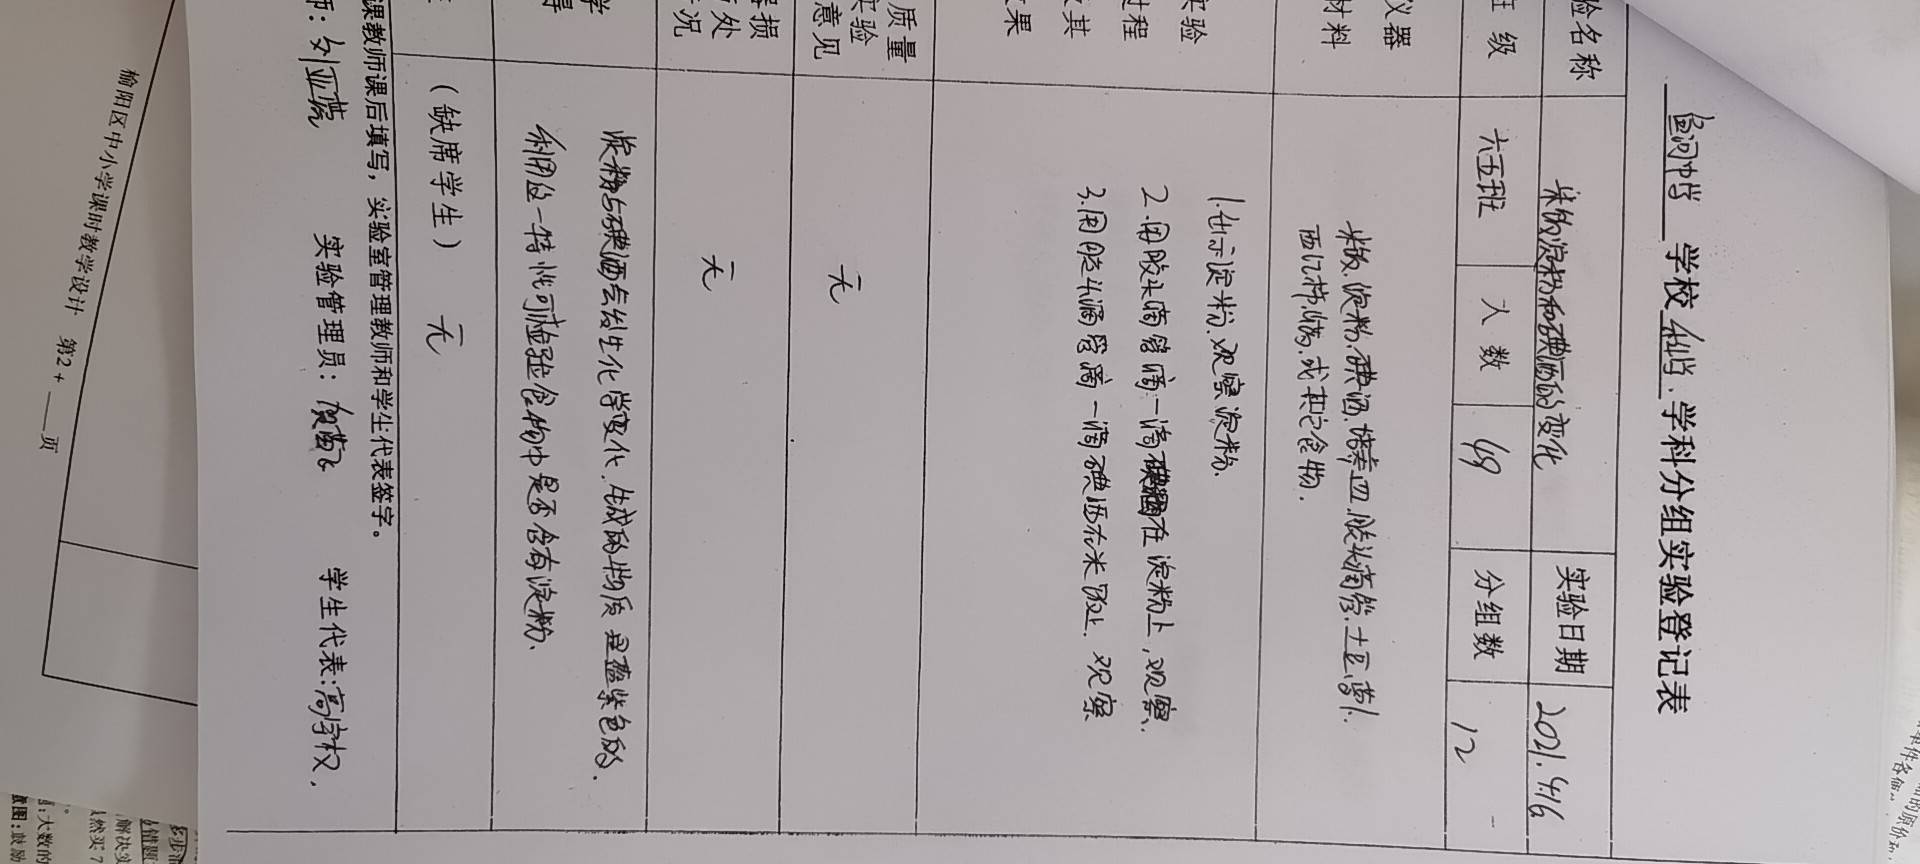 鱼河中学 学校 科学 学科分组实验登记表
验名称 米饭淀粉和碘酒的变化 实验日期 2021.4.16
班 级 六五班 人 数 69 分组数 12
仪器
材料
米饭、淀粉、碘酒、培养皿、胶头滴管、土豆、萝卜、
西红柿、或其它食物.
实验
过程
及其
效果
1.出示淀粉,观察淀粉.
2.用胶头滴管滴一滴在淀粉上,观察、
3.用胶头滴管滴一滴碘酒在米饭上、观察
质量
实验
意见
无
损
处
况
无
学
得
淀粉与碘酒会发生化学变化.生成的物质是蓝紫色的.
利用这一特性可检验食物中是否含有淀粉、
(缺席学生) 无
课教师课后填写,实验室管理教师和学生代表签字。
师: 实验管理员: 学生代表:高宇权.
榆阳区中小学课时教学设计 第2+ 页